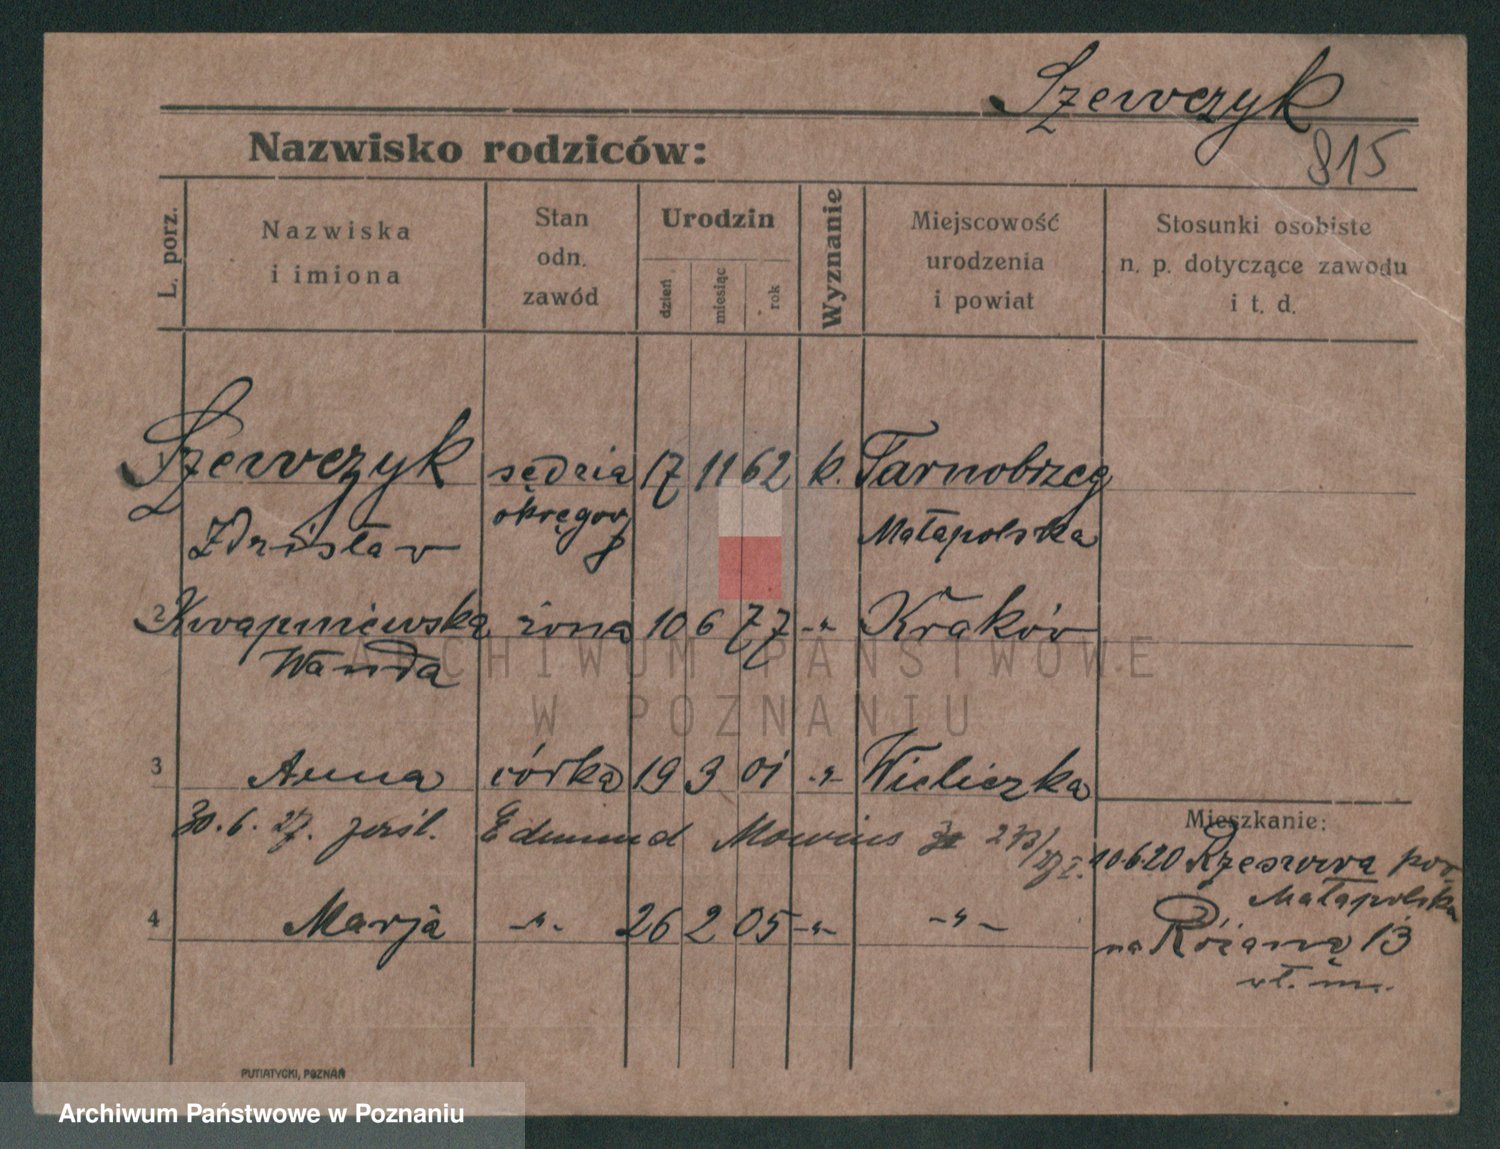 Szewczyk
Nazwisko rodziców:
815
L. porz.
Nazwiska
i imiona
Stan
odn.
zawód
Urodzin
dzień
miesiąc
rok
Wyznanie
Miejscowość
urodzenia
i powiat
Stosunki osobiste
n. p. dotyczące zawodu
i t. d.
Szewczyk sędzia 17 11 62 k. Tarnobrzeg
Zdzisław okręgowy Małapolska
2 Kwapniewska żona 10 6 77 -"- Kraków
Wanda
ARCHIWUM PAŃSTWOWE
W POZNANIU
3 Anna córka 19 3 01 -"- Wieliczka
30.6.27. Edmund
Mieszkanie:
10.6.20 Rzeszowa pow.
Małapolska
4 Marja -"- 26 2 05 -"- -"-
na Różaną 13
wł. m.
PUTIATYCKI, POZNAŃ
Archiwum Państwowe w Poznaniu